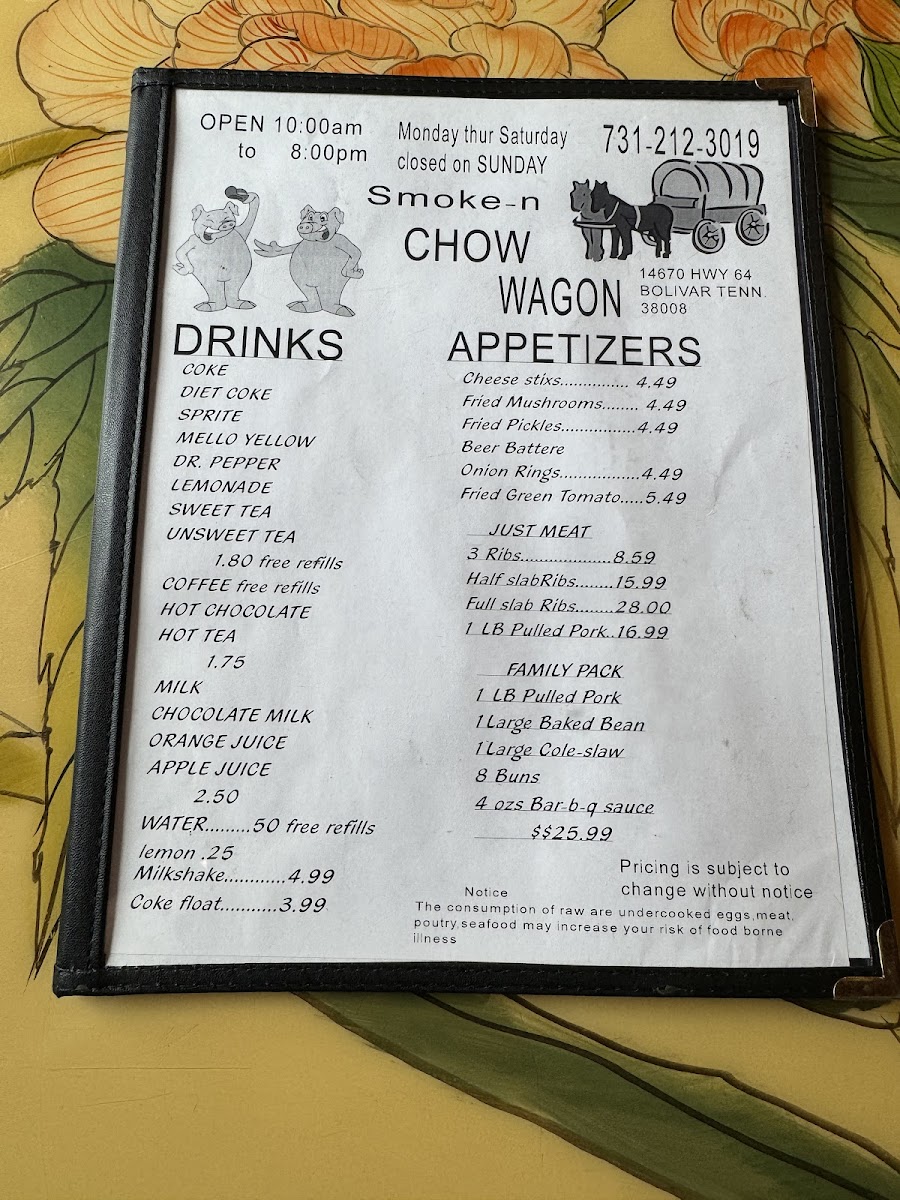 OPEN 10:00am
to 8:00pm
Monday thur Saturday
closed on SUNDAY
731-212-3019
Smoke-n
CHOW
WAGON
14670 HWY 64
BOLIVAR TENN.
38008
DRINKS
COKE
DIET COKE
SPRITE
MELLO YELLOW
DR. PEPPER
LEMONADE
SWEET TEA
UNSWEET TEA
1.80 free refills
COFFEE free refills
HOT CHOCOLATE
HOT TEA
1.75
MILK
CHOCOLATE MILK
ORANGE JUICE
APPLE JUICE
2.50
WATER.........50 free refills
lemon .25
Milkshake............4.99
Coke float...........3.99
APPETIZERS
Cheese stixs............... 4.49
Fried Mushrooms........ 4.49
Fried Pickles.................4.49
Beer Battere
Onion Rings..................4.49
Fried Green Tomato.....5.49
JUST MEAT
3 Ribs.....................8.59
Half slabRibs........15.99
Full slab Ribs........28.00
1 LB Pulled Pork..16.99
FAMILY PACK
1 LB Pulled Pork
1Large Baked Bean
1Large Cole-slaw
8 Buns
4 ozs Bar-b-q sauce
$$25.99
Pricing is subject to
change without notice
Notice
The consumption of raw are undercooked eggs,meat,
poutry,seafood may increase your risk of food borne
illness